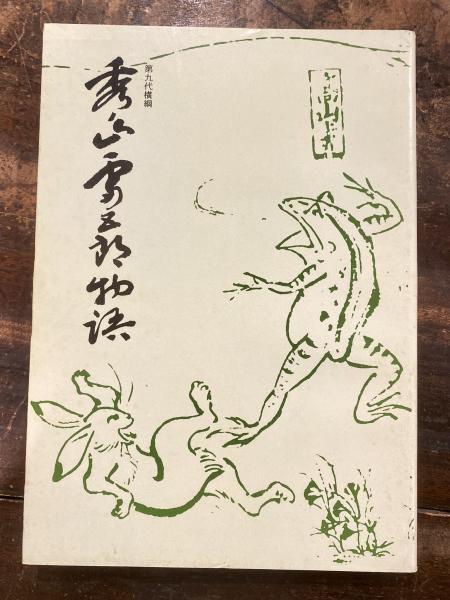 第九代横綱
秀ノ山雷五郎物語
高山寺